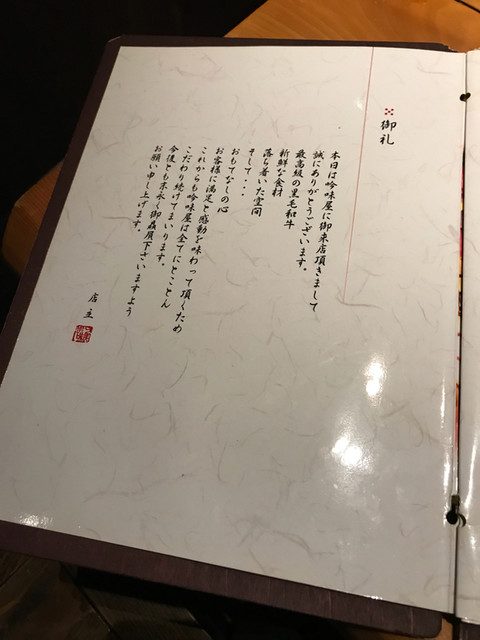 御礼
本日は吟味屋に御来店頂きまして
誠にありがとうございます。
最高級の黒毛和牛
新鮮な食材
落ち着いた空間
そして・・・
おもてなしの心
お客様に満足と感動を味わって頂くため
これからも吟味屋は全てにとことん
こだわり続けてまいります。
今後とも末永く御贔屓下さいますよう
お願い申し上げます。
店主